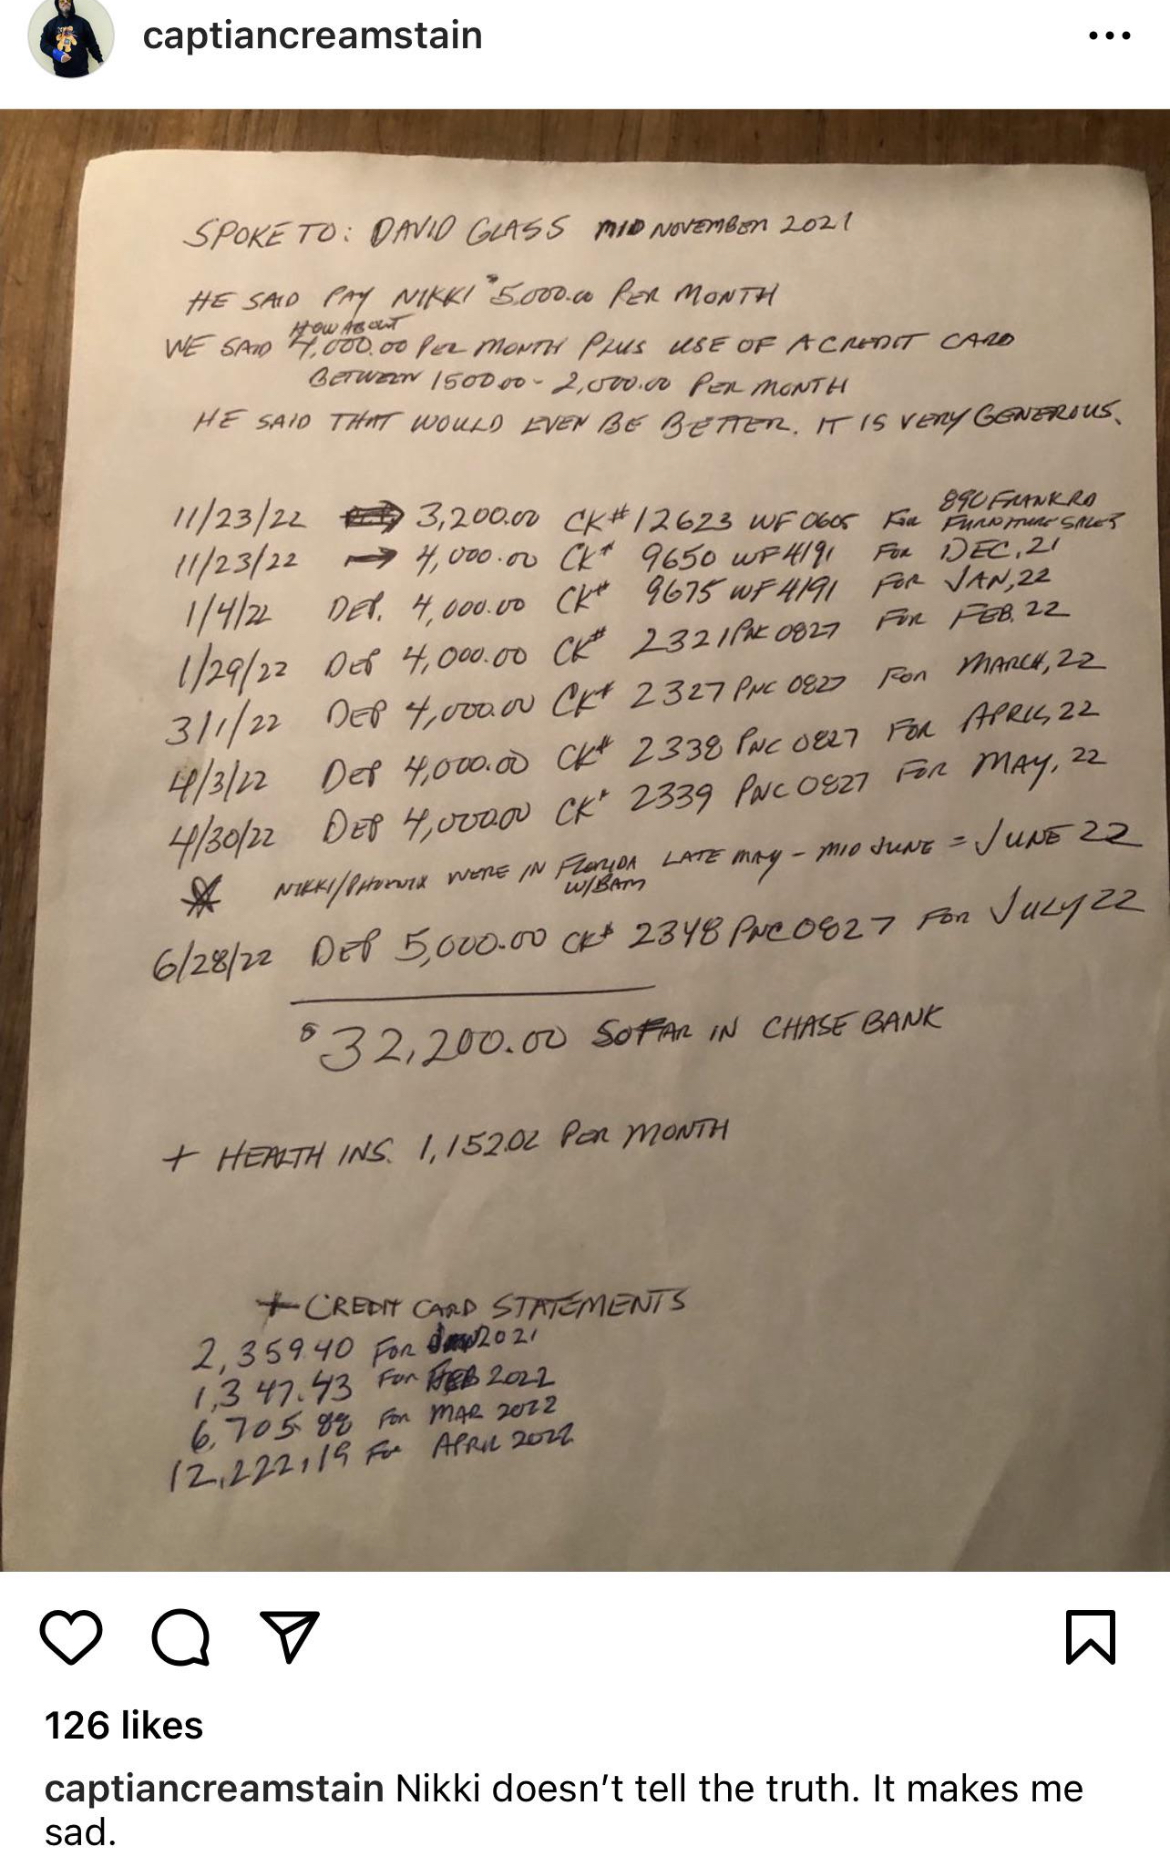 captiancreamstain
SPOKE TO: DAVID GLASS MID NOVEMBER 2021
HE SAID PAY NIKKI $5,000.00 PER MONTH
HOW ABOUT
WE SAID 4,000.00 PER MONTH PLUS USE OF A CREDIT CARD
BETWEEN 1500.00 - 2,000.00 PER MONTH
HE SAID THAT WOULD EVEN BE BETTER. IT IS VERY GENEROUS.
890 FRANK RD
11/23/22 3,200.00 CK# 12623 WF 0605 FOR FURNITURE SALES
11/23/22 → 4,000.00 CK# 9650 WF 4191 FOR DEC, 21
1/4/22 DEP. 4,000.00 CK# 9675 WF 4191 FOR JAN, 22
1/29/22 DEP 4,000.00 CK# 2321 PNC 0827 FOR FEB. 22
3/1/22 DEP 4,000.00 CK# 2327 PNC 0827 FOR MARCH, 22
4/3/22 DEP 4,000.00 CK# 2338 PNC 0827 FOR APRIL, 22
4/30/22 DEP 4,000.00 CK# 2339 PNC 0827 FOR MAY, 22
NIKKI/PHOENIX WERE IN FLORIDA LATE MAY - MID JUNE = JUNE 22
W/BAM
6/28/22 DEP 5,000.00 CK# 2348 PNC 0827 FOR JULY 22
$32,200.00 SO FAR IN CHASE BANK
+ HEALTH INS. 1,152.02 PER MONTH
+ CREDIT CARD STATEMENTS
2,359.40 FOR 2021
1,347.43 FOR FEB 2022
6,705.88 FOR MAR 2022
12,222.19 FOR APRIL 2022
126 likes
captiancreamstain Nikki doesn't tell the truth. It makes me
sad.